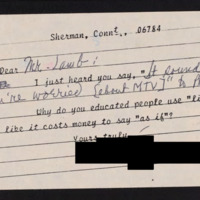 Sherman, Connt., 06784
Dear Mr. Lamb:
I just heard you say, "It sound
're worried [about MTV]" to
Why do you educated people use "li
like it costs money to say "as if"?
Yours truly,